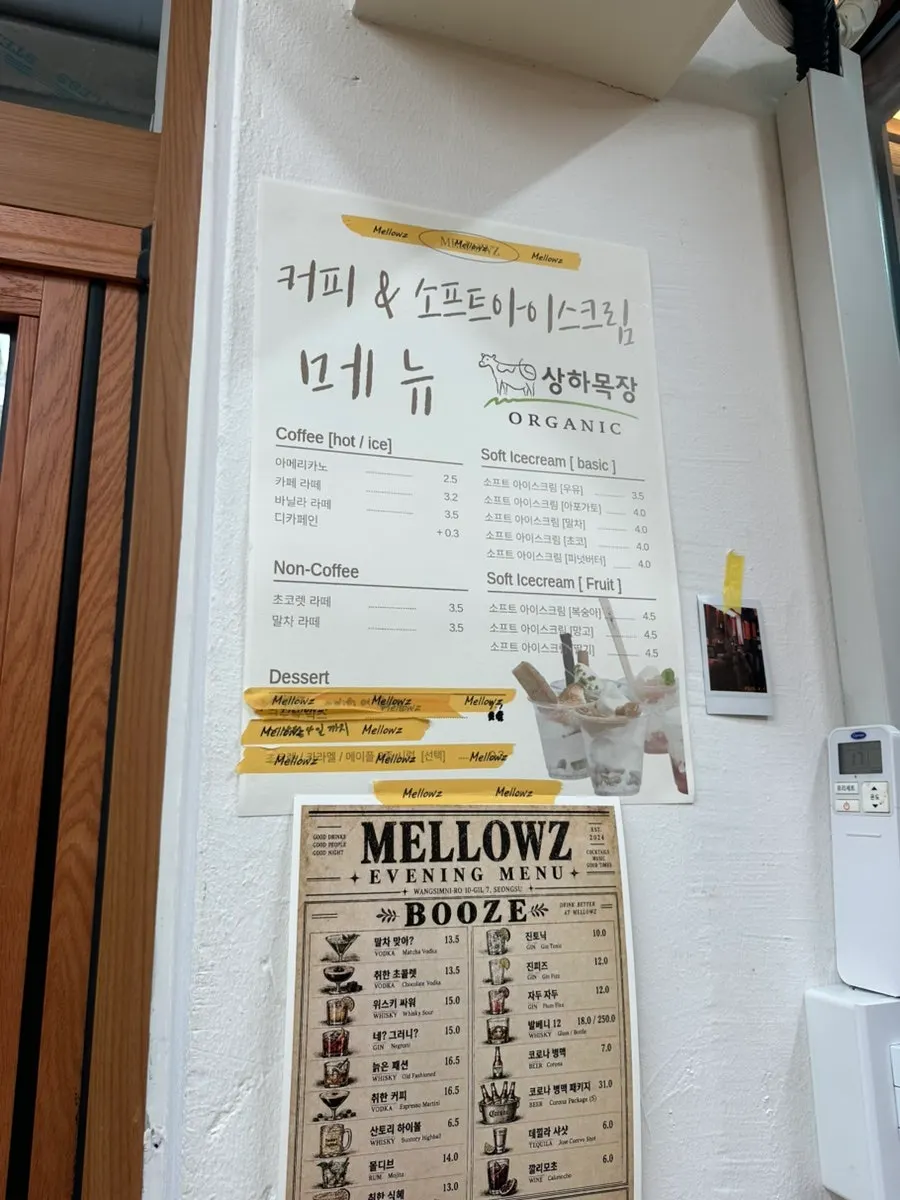 Mellowz Mellowz Mellowz
커피 & 소프트아이스크림
메뉴
상하목장
ORGANIC
Coffee [hot / ice]
아메리카노 2.5
카페 라떼 3.2
바닐라 라떼 3.5
디카페인 + 0.3
Non-Coffee
초코렛 라떼 3.5
말차 라떼 3.5
Dessert
Mellowz Mellowz Mellowz
Mellowz 까지 Mellowz
Mellowz Mellowz Mellowz
[선택]
Soft Icecream [ basic ]
소프트 아이스크림 [우유] 3.5
소프트 아이스크림 [아포가토] 4.0
소프트 아이스크림 [말차] 4.0
소프트 아이스크림 [초코] 4.0
소프트 아이스크림 [피넛버터] 4.0
Soft Icecream [ Fruit ]
소프트 아이스크림 [복숭아] 4.5
소프트 아이스크림 [망고] 4.5
소프트 아이스크림 [딸기] 4.5
Mellowz Mellowz
GOOD DRINKS
GOOD PEOPLE
GOOD NIGHT
MELLOWZ
EST.
2024
COCKTAILS
MUSIC
GOOD TIMES
EVENING MENU
WANGSIMNI-RO 10-GIL 7, SEONGSU
BOOZE
DRINK BETTER
AT MELLOWZ
말차 맞아? 13.5
VODKA Matcha Vodka
취한 초콜렛 13.5
VODKA Chocolate Vodka
위스키 싸워 15.0
WHISKY Whisky Sour
네? 그러니? 15.0
GIN Negroni
늙은 패션 16.5
WHISKY Old Fashioned
취한 커피 16.5
VODKA Espresso Martini
산토리 하이볼 6.5
WHISKY Suntory Highball
몰디브 14.0
RUM Mojito
취한 식혜 13.0
진토닉 10.0
GIN Gin Tonic
진피즈 12.0
GIN Gin Fizz
자두 자두 12.0
GIN Plum Fizz
발베니 12 18.0 / 250.0
WHISKY Glass / Bottle
코로나 병맥 7.0
BEER Corona
코로나 병맥 패키지 31.0
BEER Corona Package (5)
데낄라 샤샷 6.0
TEQUILA Jose Cuervo Shot
깔리모초 6.0
WINE Calimocho